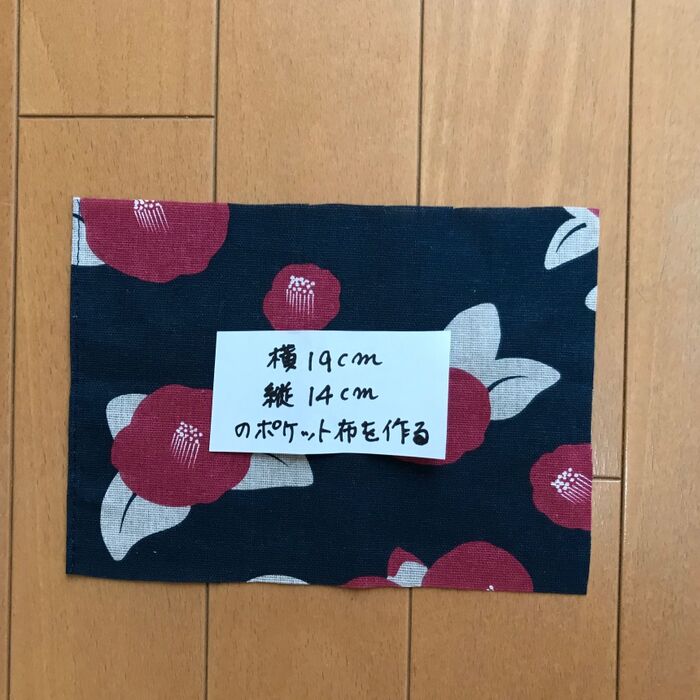 横19cm
縦14cm
のポケット布を作る